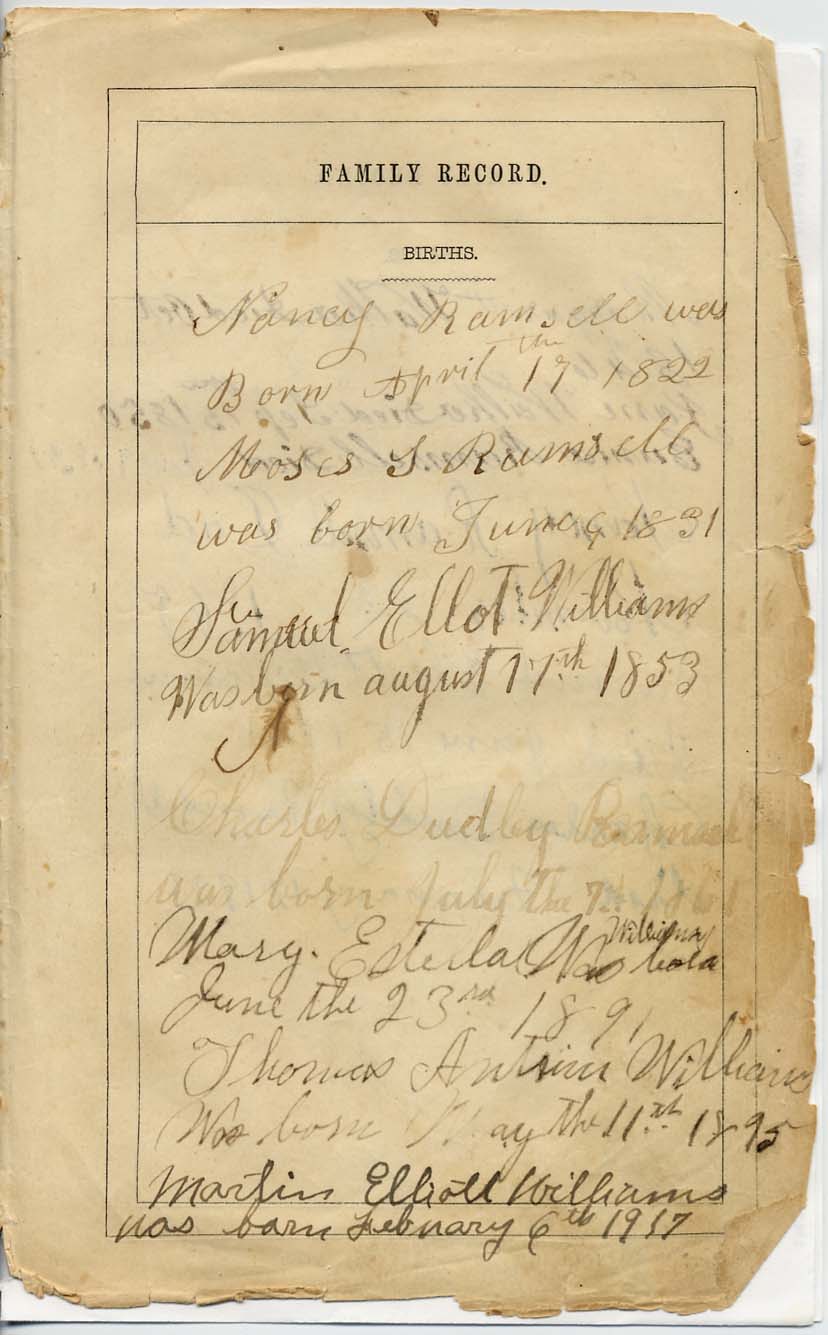 FAMILY RECORD.
BIRTHS.
Nancy Ramsell was
Born April 17th 1822
Moses S Ramsell
was born June 9 1831
Samuel Ellot Williams
Was born august 17th 1853
Charles Dudley
was born July the 7th
Mary. Estella Williams Was born
June the 23rd 1891
Thomas Antrim Williams
Was born May the 11th 1895
Martin Elliott Williams
was born February 6th 1917